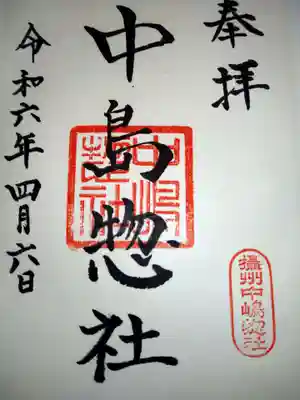 奉拝
中島惣社
令和六年四月六日
中嶋惣社
攝州中嶋惣社